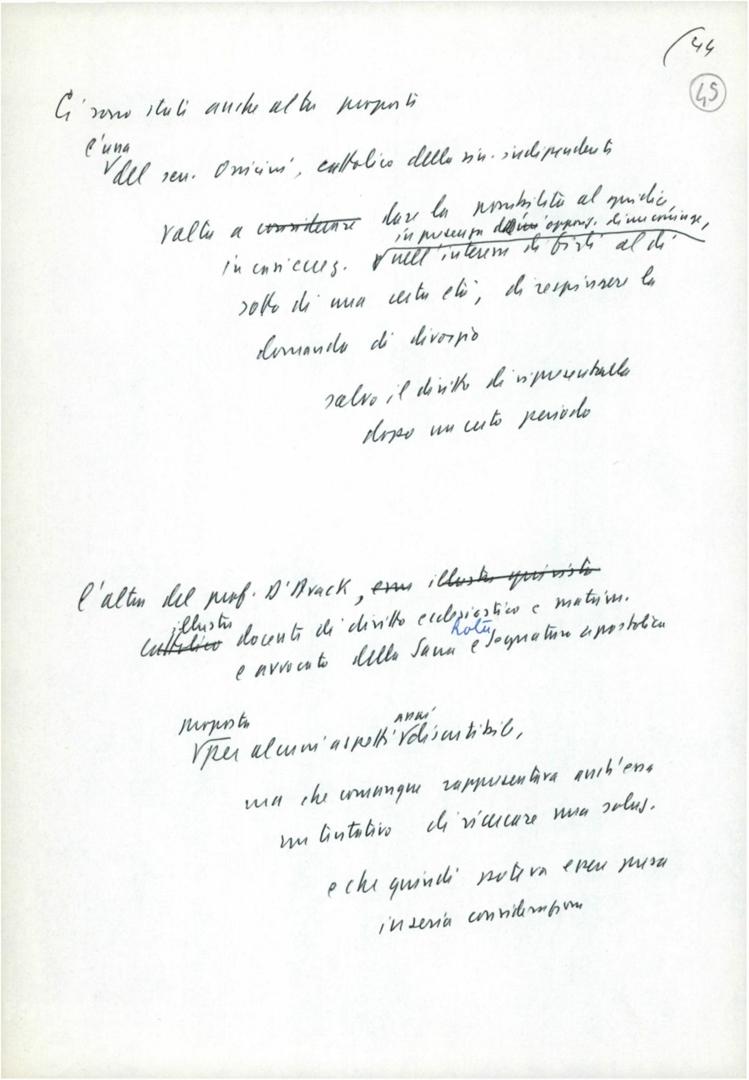 44
45
Ci sono stati anche altre proposte
l'una
del sen. Ossicini, cattolico della sin. indipendente
volta a considerare dare la possibilità al giudice,
in presenza dell'oppos. di un coniuge,
in casi ecc. nell'interesse di figli al di
sotto di una certa età, di respingere la
domanda di divorzio
salvo il diritto di ripresentarla
dopo un certo periodo
l'altra del prof. D'Avack, illustre giurista
illustre
cattolico docente di diritto ecclesiastico e matrim.
Rota
e avvocato della Sacra e Segnatura apostolica
proposta anzi
per alcuni aspetti discutibile,
ma che comunque rappresentava anch'essa
un tentativo di ricercare una soluz.
e che quindi poteva essere presa
in seria considerazione